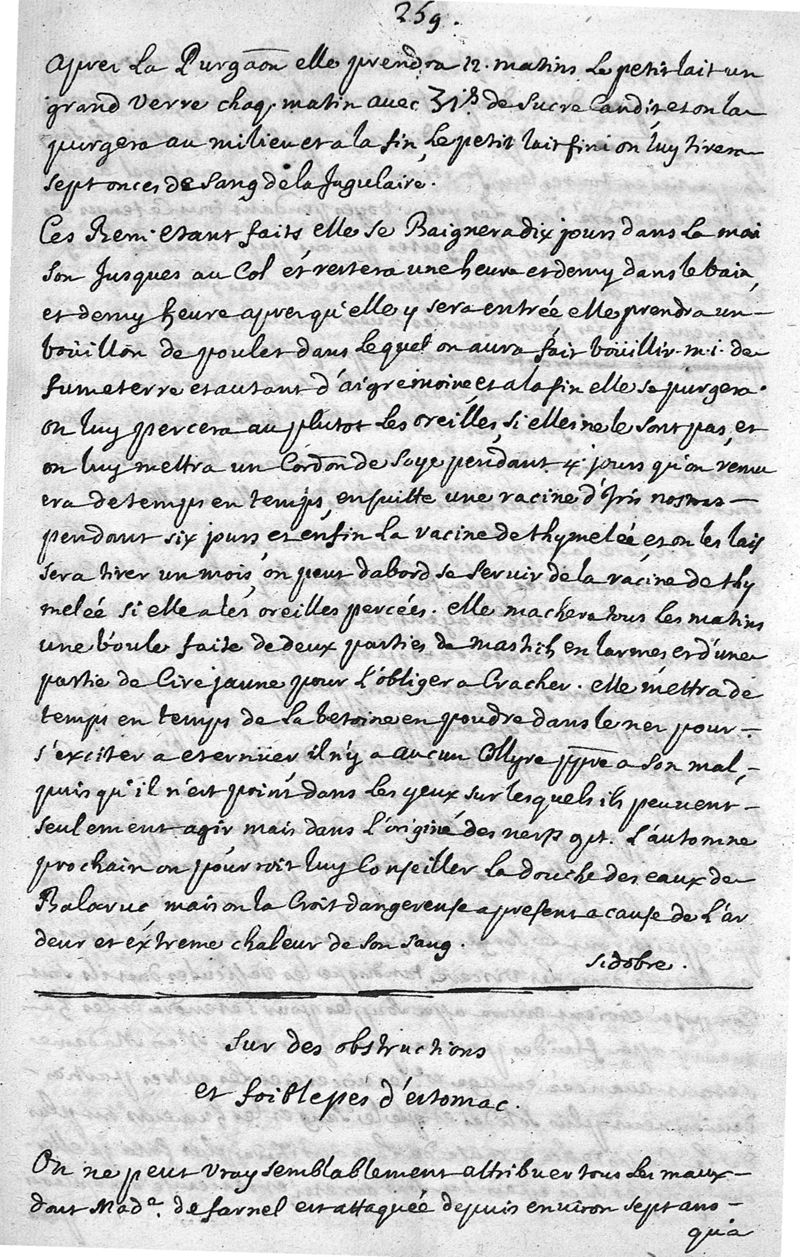 259.
apres la Purgaōn elle prendra 12. matins le petit lait un
grand verre chaq. matin avec ʒiß de sucre Candit, et on la
purgera au milieu et a la fin, Le petit lait fini on luy tirera
sept onces de sang de la Jugulaire.
Ces Rem. etant faits elle se Baignera dix jours dans la mai
son Jusques au Col et restera une heure et demy dans le bain,
et demy heure apres qu'elle y sera entrée elle prendra un
boüillon de poulet dans lequel on aura fait boüillir m. i. de
fumeterre et autant d'aigremoine et a la fin elle se purgera.
on luy percera au plutot les oreilles, si elles ne le sont pas, et
on luy mettra un Cordon de Soye pendant 4. jours qu'on remu
era de temps en temps, ensuitte une racine d'Iris nostras
pendant six jours et enfin la racine de thymelée et on les lais
sera tirer un mois, on peut dabord se servir de la racine de thy
melée si elle a les oreilles percées. elle machera tous les matins
une boule faite de deux parties de mastich en larmes et d'une
partie de Cire jaune pour l'obliger a Cracher. elle mettra de
temps en temps de la betoine en poudre dans le nez pour
s'exciter a eternüer il n'y a aucun Collyre ppre a son mal,
puis qu'il n'est point dans les yeux sur lesquels ils peuvent
seulement agir mais dans l'origine des nerfs opt. L'automne
prochain on pourroit luy Conseiller la douche des eaux de
Balaruc mais on la Croit dangereuse a present a cause de l'ar
deur et extreme chaleur de son sang.
sidobre.
Sur des obstructions
et foiblesses d'estomac.
On ne peut vray semblablement attribuer tous les maux
dont Mad.e de farnel est attaquée depuis environ sept ans
qu'a